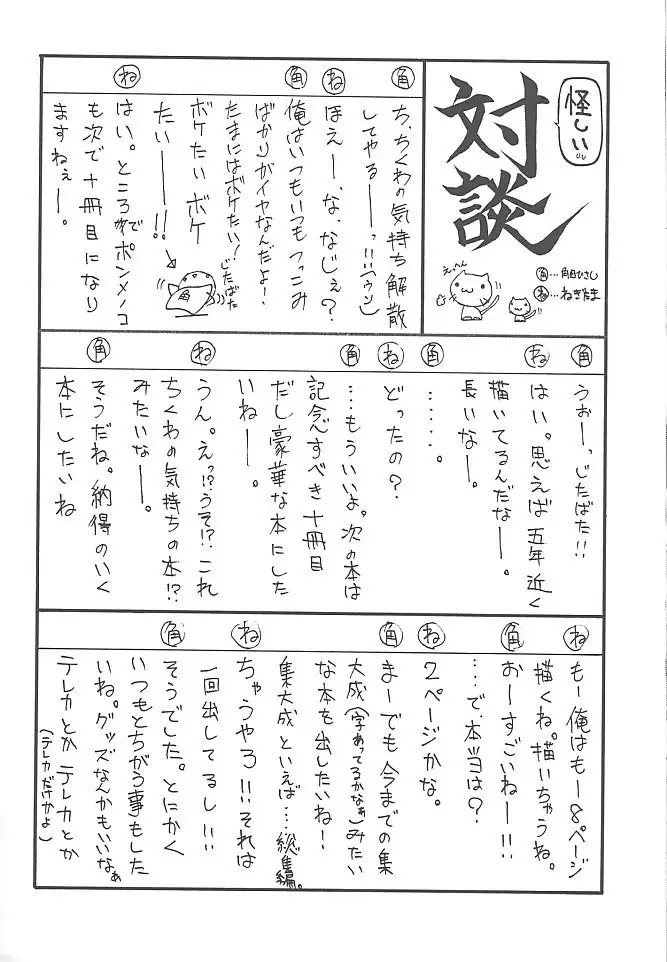 怪しい
対談
角…角日ひさし
ね…ねぎたま
えっへん
角
ち、ちくわの気持ち解散
してやるーっ!!(ウソ)
ね
ほえー、な、なじぇ?
角
俺はいつもいつもつっこみ
ばかりがイヤなんだよー!
たまにはボケたい!
じたばた
ボケたい ボケ
たいー!!
角
ね
はい。ところでポンメノコ
も次で十冊目になり
ますねぇー。
角
うぉーっ、じたばた!!
ね
はい。思えば五年近く
描いてるんだなー。
長いなー。
角
……。
ね
どったの?
角
…もういいよ。次の本は
記念すべき十冊目
だし豪華な本にした
いねー。
ね
うん。えっ!?うそ!?これ
ちくわの気持ちの本!?
みたいなー。
角
そうだね。納得のいく
本にしたいね
ね
もー俺はもー8ページ
描くね。描いちゃうね。
角
おーすごいねー!!
…で、本当は?
ね
2ページかな。
角
まーでも今までの集
大成(字あってるかなぁ)みたい
な本を出したいね!
集大成といえば…総集編。
ね
ちゃうやろ!!それは
一回出してるし!!
角
そうでした。とにかく
いつもとちがう事もした
いね。グッズなんかもいいなぁ
テレカとかテレカとか
(テレカだけかよ)